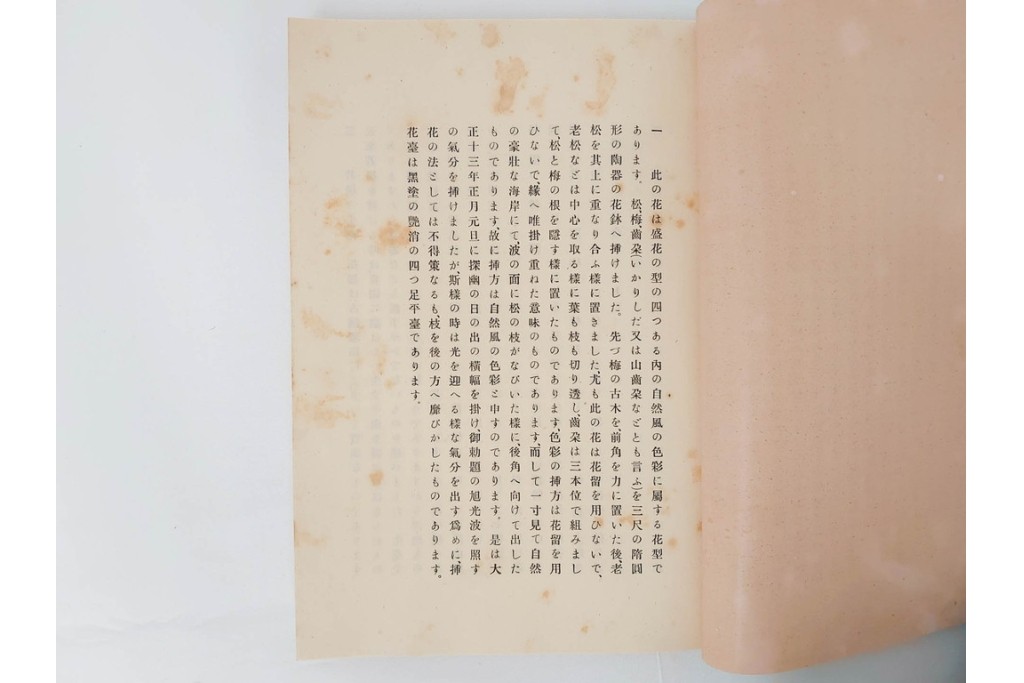 一　此の花は盛花の型の四つある內の自然風の色彩に屬する花型で
あります。松、梅、齒朶(いかりしだ又は山齒朶などとも言ふ)を三尺の隋圓
形の陶器の花鉢へ揷けました。先づ梅の古木を、前角を力に置いた後、老
松を其上に重なり合ふ樣に置きました、尤も此の花は花留を用ひないで、
老松などは中心を取る樣に葉も枝も切り透し、齒朶は三本位で組みまし
て、松と梅の根を隱す樣に置いたものであります、色彩の揷方は花留を用
ひないで、緣へ唯掛け重ねた意味のものであります、而して一寸見て自然
の豪壯な海岸にて、波の面に松の枝がなびいた樣に、後角へ向けて出した
ものであります、故に揷方は自然風の色彩と申すのであります。是は大
正十三年正月元旦に探幽の日の出の橫幅を掛け、御勅題の旭光波を照す
の氣分を揷けましたが、斯樣の時は光を迎へる樣な氣分を出す爲めに、揷
花の法としては不得策なるも、枝を後の方へ靡びかしたものであります。
花臺は黑塗の艷消の四つ足平臺であります。